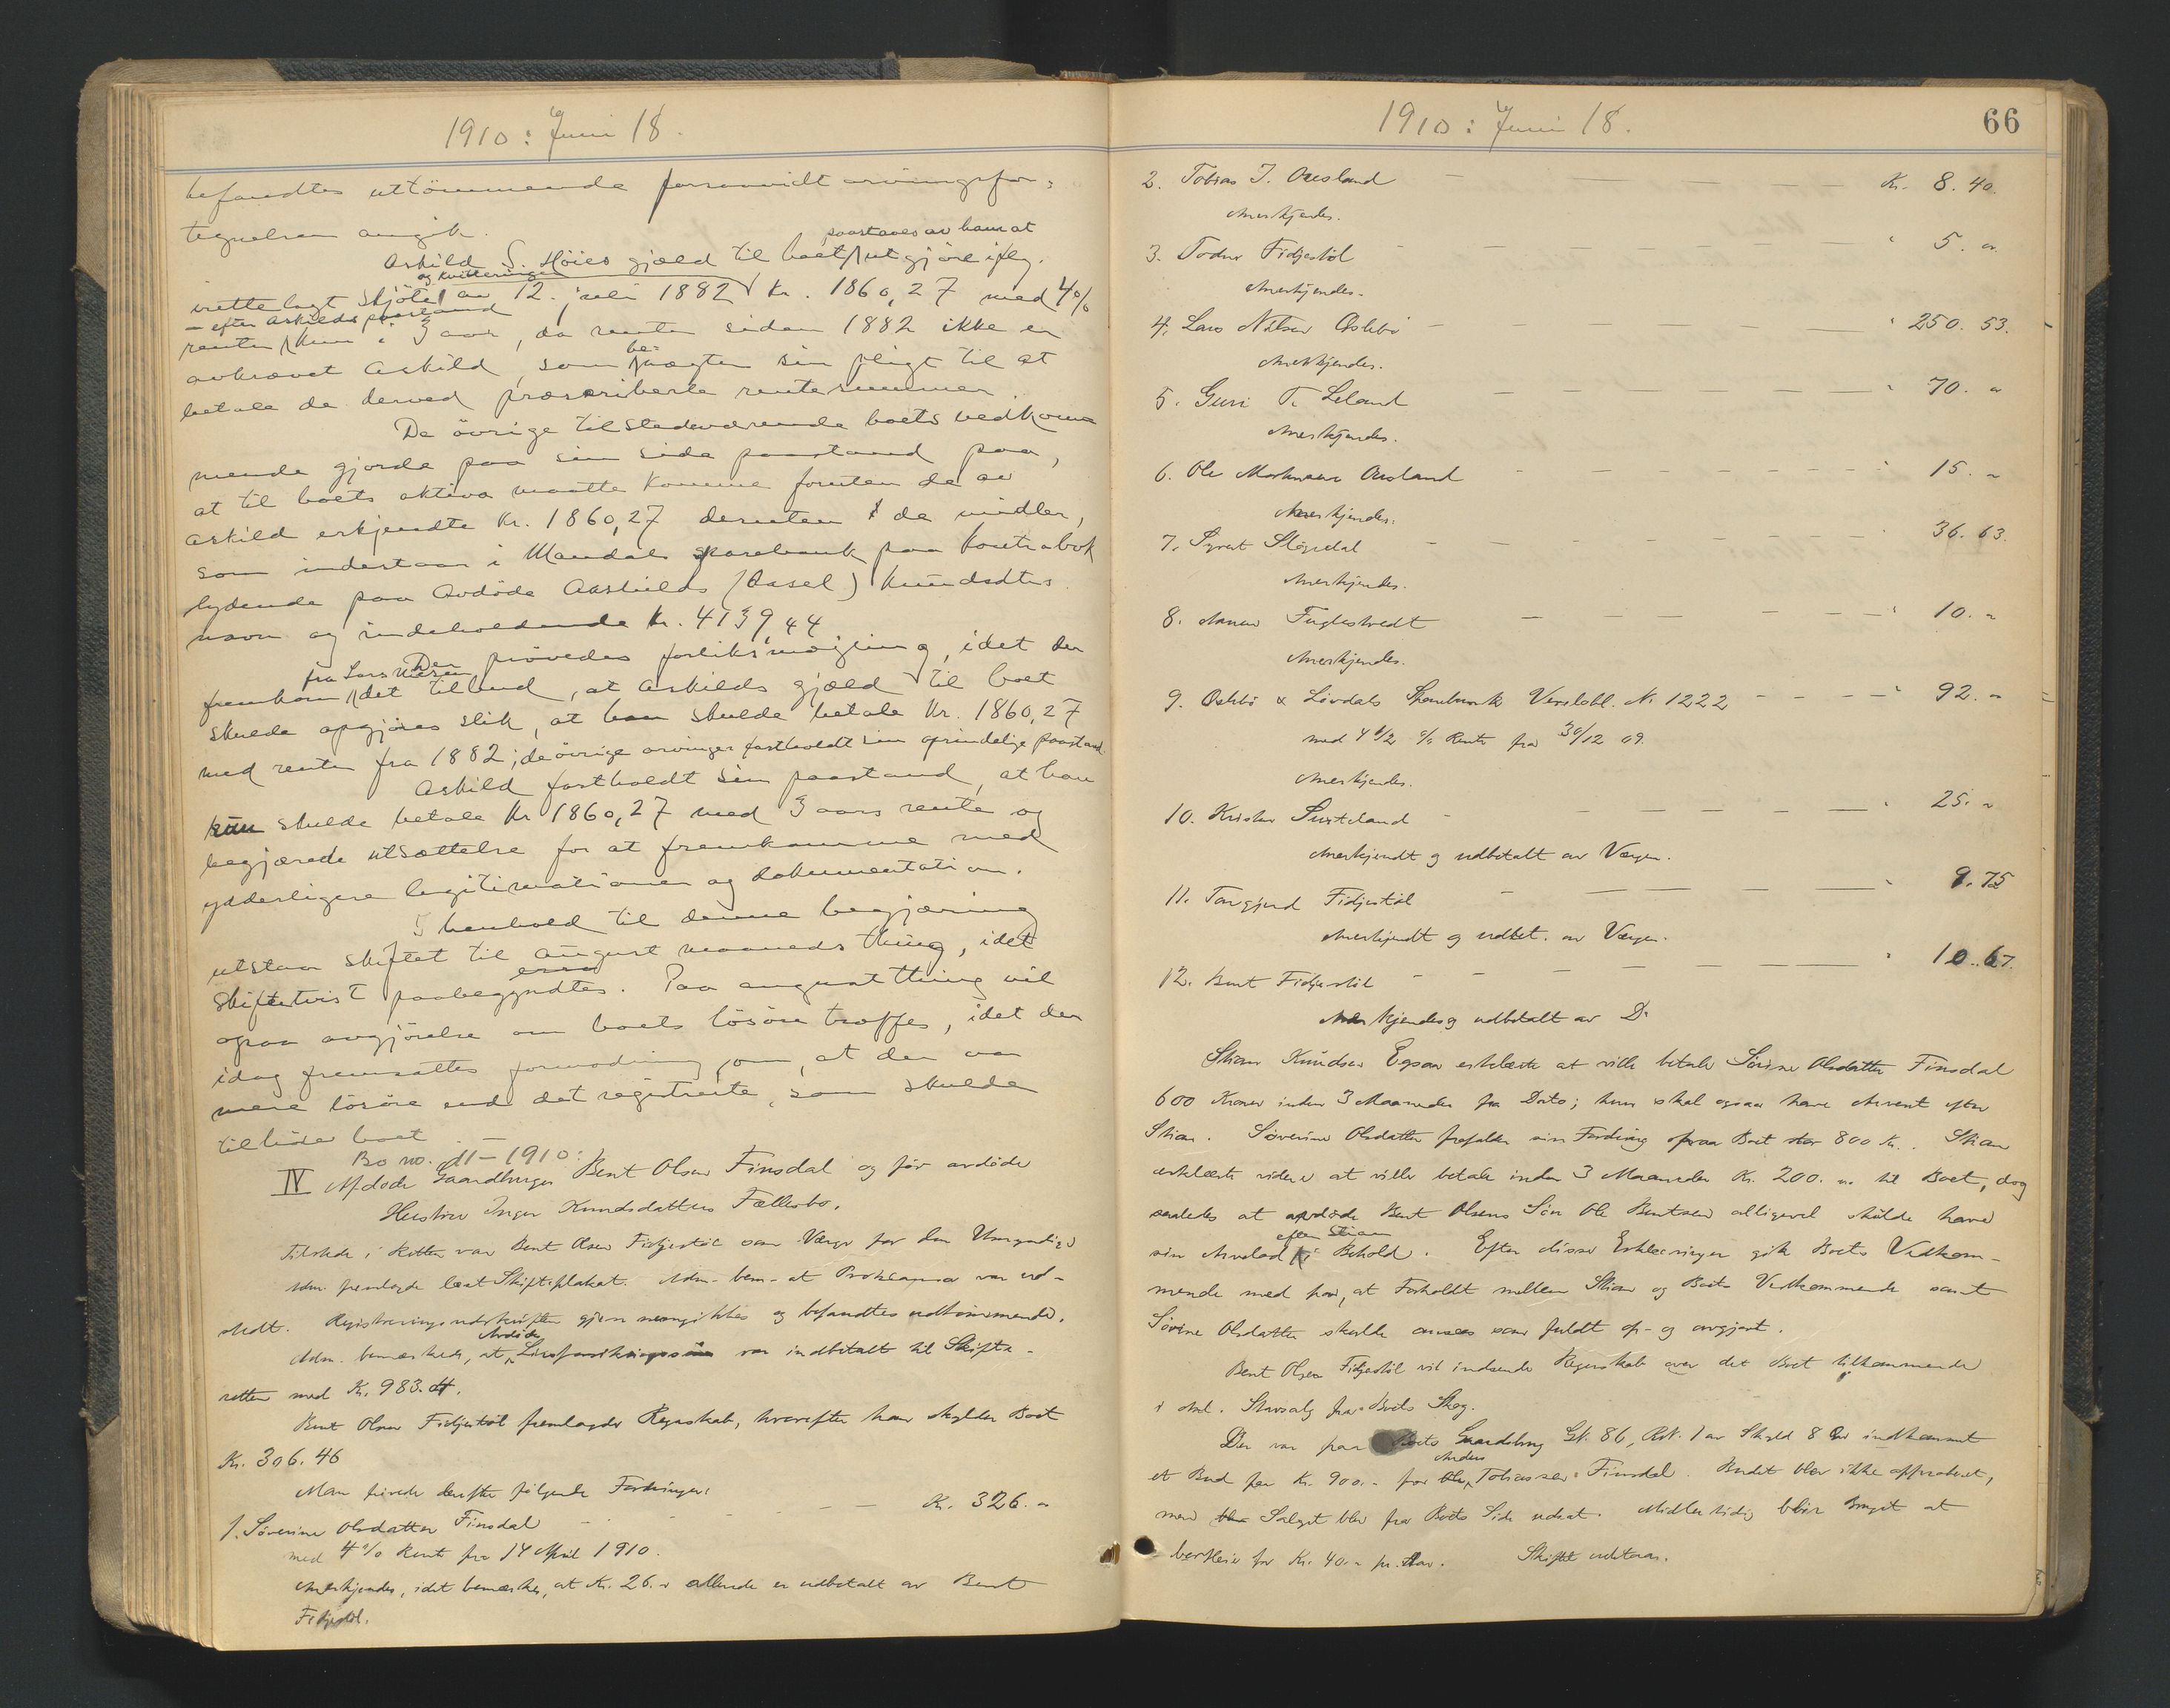 1910: Juni 18.
befandtes uttömmende forsaavidt arvingsfor-
tegnelsen angik.
paastaaes av ham at
Askild S. Høies gjæld til boet utgjöre iflg.
og kvitteringer
irettelagt skjöte av 12. juli 1882 kr. 1860,27 med 4%
- efter Askilds paastand
renter kun i 3 aar, da renter siden 1882 ikke er
be-
avkrævet Askild, som nægter sin pligt til at
betale de derved præskriberte rentesummer.
De övrige tilstedeværende boets vedkom-
mende gjorde paa sin side paastand paa,
at til boets aktiva maatte komme foruten de av
Askild erkjendte Kr. 1860,27 desuten de midler,
som indestaar i Mandals sparebank paa kontrabok
lydende paa Avdöde Aashilds (Aasel) Knudsdtrs
navn og indeholdende kr. 4139,44
Der prövedes forliksmægling, idet der
fra Lars Nilsen
fremkom det tilbud, at Askilds gjæld til boet
skulde opgjöres slik, at han skulde betale Kr. 1860,27
med renter fra 1882; de övrige arvinger fastholdt sin oprindelige paastand.
Askild fastholdt sin paastand, at han
kun skulde betale Kr 1860,27 med 3 aars rente og
begjærede utsættelse for at fremkomme med
yderligere legitimationer og dokumentation.
I henhold til denne begjæring
utstaar skiftet til august maaneds thing, idet
skiftetvist paabegyndtes. Paa augustthing vil
ogsaa avgjörelse om boets lösöre træffes, idet der
idag fremsattes formodning om, at der var
mere lösöre end det registrerte, som skulde
tilhöre boet. —
Bo no. 11 - 1910:
IV Afdøde Gaardbruger Bent Olsen Finsdal og før avdöde
Hustru Inger Knudsdatters Fællesbo.
Tilstede i Retten var Bent Olsen Fidjestöl som Værge for den Umyndige
Adm. fremlagde læst Skifteplakat. Adm. bem. at Proklama var ud-
stedt. Registreringsudskriften gjennemgikkes og befandtes udtömmende.
Avdöde
Adm. bemærkede, at Livsforsikringssum var indbetalt til Skifte-
retten med Kr. 983.
Bent Olsen Fidjestöl fremlagde Regnskab, hvorefter han skylder Boet
Kr. 306.46
Man prøvede derefter følgende Fordringer:
1. Söverine Olsdatter Finsdal — — Kr. 326. "
med 4% Rente fra 14 April 1910.
Anerkjendes, idet bemærkes, at Kr. 26. " allerede er udbetalt av Bent
Fidjestöl.
1910: Juni 18.
66
2. Tobias J. Ousland — — — — Kr. 8. 40.
Anerkjendes.
3. Fidjestöl - — — — — " 5. "
Anerkjendes.
4. Lars Nilsen — — — — " 250. 53.
Anerkjendes.
5. Guri T. Leland — — — — " 70. "
Anerkjendes.
6. Ole Ousland - — — — " 15. "
Anerkjendes.
7. Syvert Stögedal — — — — " 36. 63.
Anerkjendes.
8. Fuglestvedt — — — " 10. "
Anerkjendes.
9. & Løvdals Sparebank Vexelobl. N. 1222 - - - " 92. "
med 4 1/2 % Rente fra 30/12 09.
Anerkjendes.
10. — — — " 25. "
Anerkjendt og udbetalt av Værgen.
11. Torgjerd Fidjestöl — — — " 9. 75
Anerkjendt og udbet. av Værgen.
12. Bent Fidjestöl - — — — " 10. 67.
Anerkjendes og udbetalt av Do
Stian Knudsen Egsaa erklærte at ville betale Sörine Olsdatter Finsdal
600 Kroner inden 3 Maaneder fra Dato; hun skal ogsaa have efter
Stian. Söverine Olsdatter frafalder sin Fordring paa Boet stor 800 Kr. Stian
erklærte videre at ville betale inden 3 Maaneder Kr. 200. " til Boet, dog
saaledes at avdöde Bent Olsens Sön Ole Bentsen alligevel skulde have
efter Stian
sin Arvelod i Behold. Efter disse Erklæringer gik Boets Vedkom-
mende med paa, at Forholdt mellem Stian og Boets Vedkommende samt
Sörine Olsdatter skulde ansees som fuldt op- og avgjort.
Bent Olsen Fidjestöl vil indsende Regnskab over det Boet tilkommende
i Stavsalg fra Boets Skog.
Der var paa Boets Gaardsbrug Gl. 86, B.N. 1 av Skyld 8 Öre indkommet
Anders
et Bud paa Kr. 900.- fra Tobiassen Finsdal. Budet blev ikke approberet,
men Salget blev fra Boets Side udsat. Midlertidig blir Bruget at
bortleie for Kr. 40. " pr. Aar. Skiftet udstaar.